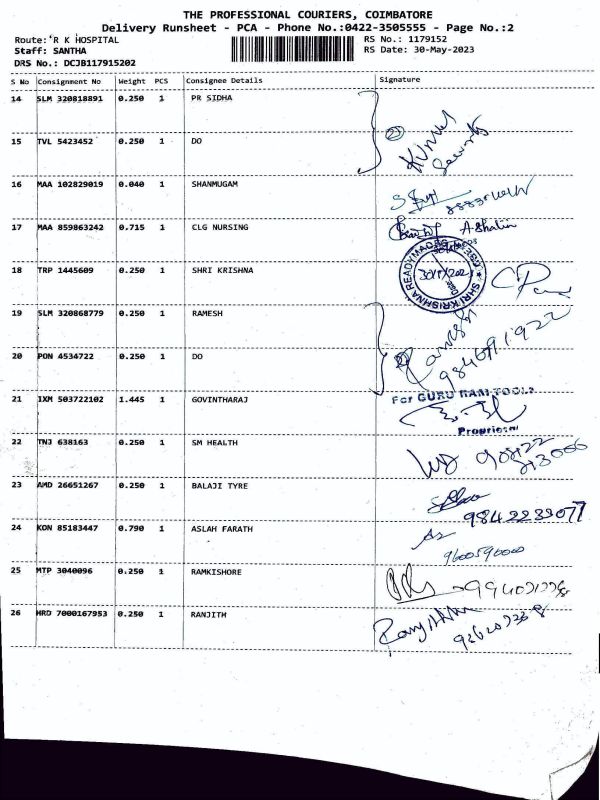 THE PROFESSIONAL COURIERS, COIMBATORE
Delivery Runsheet - PCA - Phone No.:0422-3505555 - Page No.:2
Route: R K HOSPITAL RS No.: 1179152
Staff: SANTHA RS Date: 30-May-2023
DRS No.: DCJB117915202
S No Consignment No Weight PCS Consignee Details Signature
14 SLM 320818891 0.250 1 PR SIDHA
15 TVL 5423452 0.250 1 DO
16 MAA 102829019 0.040 1 SHANMUGAM
17 MAA 859863242 0.715 1 CLG NURSING
18 TRP 1445609 0.250 1 SHRI KRISHNA
19 SLM 320868779 0.250 1 RAMESH
20 PON 4534722 0.250 1 DO
21 IXM 503722102 1.445 1 GOVINTHARAJ For GURU RAM TOOLS
Proprietor
22 TNJ 638163 0.250 1 SM HEALTH
23 AMD 26651267 0.250 1 BALAJI TYRE 9842239077
24 KON 85183447 0.790 1 ASLAH FARATH
25 MTP 3040096 0.250 1 RAMKISHORE
26 HRD 7000167953 0.250 1 RANJITH